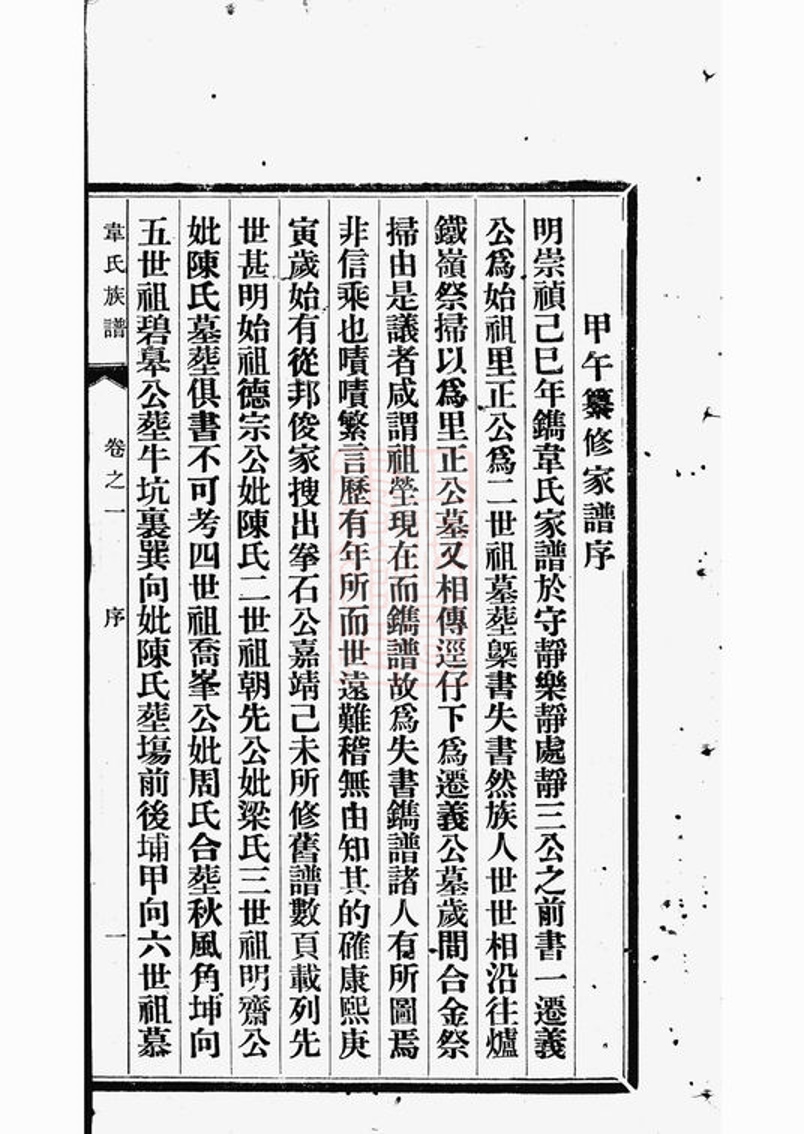 甲午纂修家譜序
明崇禎己巳年鐫韋氏家譜於守靜樂靜處靜三公之前書一遷義
公爲始祖里正公爲二世祖墓塟槩書失書然族人世世相沿往爐
鐵嶺祭掃以爲里正公墓又相傳逕仔下爲遷義公墓歲間合金祭
掃由是議者咸謂祖塋現在而鐫譜故爲失書鐫譜諸人有所圖焉
非信乘也嘖嘖繁言歷有年所而世遠難稽無由知其的確康熙庚
寅歲始有從邦俊家搜出拳石公嘉靖己未所修舊譜數頁載列先
世甚明始祖德宗公妣陳氏二世祖朝先公妣梁氏三世祖明齋公
妣陳氏墓塟俱書不可考四世祖喬峯公妣周氏合塟秋風角坤向
五世祖碧皋公塟牛坑裏巽向妣陳氏塟塲前後埔甲向六世祖慕
韋氏族譜 卷之一 序 一